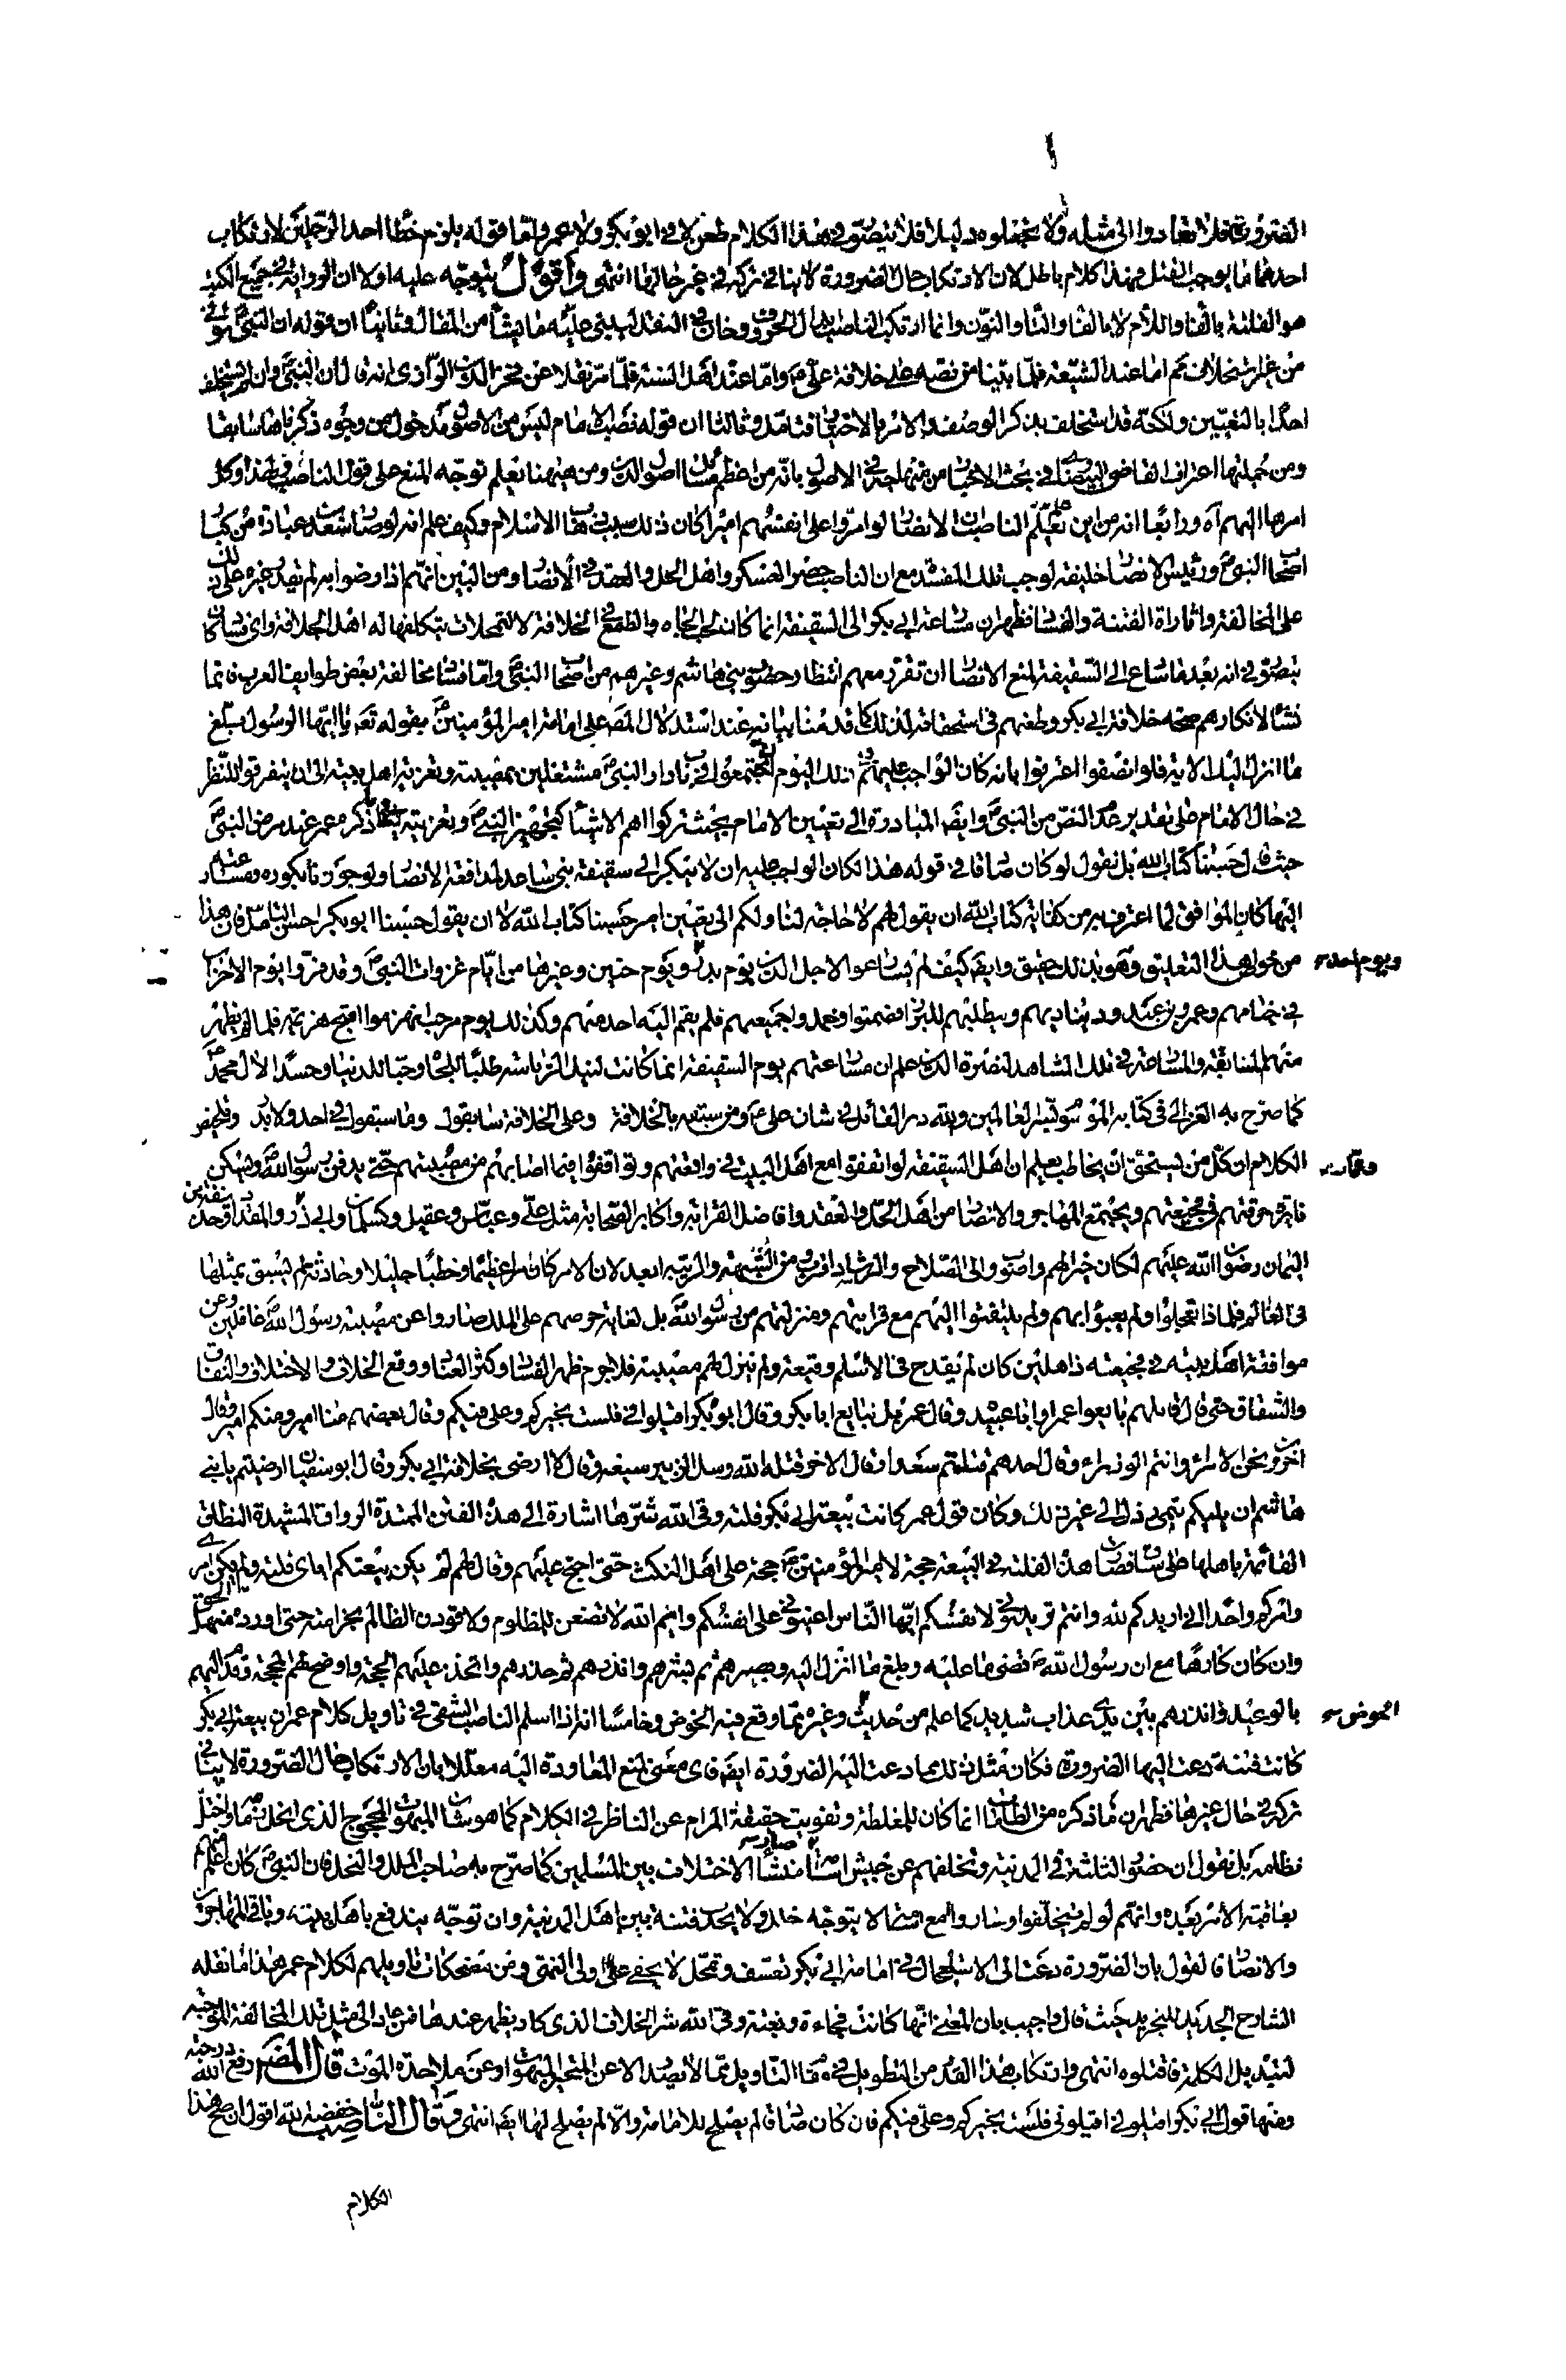 الضرورة فلا تعادوا الى مثله ولا تجعلوه دليلا فلا يتصور في هذا الكلام طعن لا في ابو بكر ولا عمر وامّا قوله يلزم خطا احد الرجلين لارتكاب
احدهما ما يوجب القتل فهذا كلام باطل لان الارتكاب حال الضرورة لا ينافي تركه في غير حالها انتهى وأقول يتوجّه عليه اولا ان الرواية في جميع الكتب
هو الفلتة بالفاء واللام لا بالفاء والتاء والنون وانما ارتكب الناصب هذا التحريف وخان في النقل ليبنى عليه ما يشاء من المقال وثانياً ان قوله ان النبي ص توفى
من غير استخلاف مم اما عند الشيعة فلما بيّنا من نصّه على خلافة علي ع واما عند اهل السنة فلما مرّ نقلا عن فخر الدين الرازى انه قال ان النبي ص وان لم يستخلف
احدا بالتعيين ولكنّه قد استخلف بذكر الوصف والامر بالاختيار فتامّل وثالثا ان قوله نصب الامام ليس من الاصول مدخول من وجوه ذكرناها سابقا
ومن جملتها اعتراف القاضي البيضاوى في بحث الاخبار من منهاجه في الاصول بانّه من اعظم مسائل اصول الدين ومن هيهنا يعلم توجّه المنع على قول الناصب في هذا وكل
امرها اليهم آه ورابعًا انه من اين تعلّم الناصب ان الانصار لو امرّوا على انفسهم اميراً كان ذلك سبب ذهاب الاسلام وكيف علم انه لو صار سعد بن عبادة من كبار
اصحاب النبي ص ورئيس الانصار خليفة لوجب تلك المفسدة مع ان الناصب حصر العسكر واهل الحل والعقد في الانصار ومن البيّن انهم اذا رضوا به لم يقدر غيره على ذلك
على المخالفة واثارة الفتنة والفساد فظهر ان مسارعة ابي بكر الى السقيفة انما كان لحب الجاه والطمع في الخلافة لا لتمحلات يتكلفها له اهل الخلافة واى فساد كان
يتصوّر في انه بعد ما سارع الى السقيفة لمنع الانصار ان تقرر معهم انتظار حضور بني هاشم وغيرهم من اصحاب النبي ص وامّا فساد مخالفة بعض طوايف العرب فانما
نشأ لانكارهم صحة خلافة ابي بكر وطعنهم في استحقاقه لذلك كما قدمنا بيانه عند استدلال المص على امامة امير المؤمنين ع بقوله تع يا ايها الرسول بلّغ
ما انزل اليك الاية فلو انصفوا اعترفوا بانه كان الواجب عليهم في ذلك اليوم ان يجتمعوا في دار النبي ص مشتغلين بمصيبته وتعزية اهل بيته الى ان يتفرغوا للنظر
في حال الامام على تقدير عدم النص من النبي ص وايضَ المبادرة الى تعيين الامام بحيث تركوا اهم الاشياء كتجهيز النبي ص وتعزيته ينافي ما ذكره عمر عند مرض النبي ص
حيث قال حسبنا كتاب الله بل نقول لو كان صادقا في قوله هذا لكان الواجب عليه ان لا يتبكر الى سقيفة بني ساعدة لمدافعة الانصار ولو جوّزنا بكوره ومسارعته
اليها كان الموافق لما اعترف به من كفاية كتاب الله ان يقول لهم لا حاجة لنا ولكم الى تعيين امير حسبنا كتاب الله لا ان يقول حسبنا ابو بكر احسن التامل فان هذا
من خواص هذا التعليق وهو بذلك حقيق وايضَ كيف لم يسارعوا لاجل الدين يوم بدر ويوم حنين وغيرها من ايام غزوات النبي ص وقد فرّوا يوم الاحزاب
ويوم احد
في خيامهم وعمرو بن عبد ود يناديهم ويطلبهم للبراز فصمتوا وخمدوا جميعهم فلم يقم اليه احد منهم وكذلك يوم مرحب انهزموا اقبح هزيمة فلما لم يظهر
منهم المسابقة والمسارعة في تلك المشاهد لنصرة الدين علم ان مسارعتهم يوم السقيفة انما كانت لنيل الرياسة طلباً للجاه وحبّا للدنيا وحسدًا لآل محمد ص
كما صرّح به الغزالى في كتابه الموسوم بسرّ العالمين ولله در القائل في شان علي ع ومن سبقه بالخلافة وعلى الخلافة سابقوك وما سبقوك في احد ولا بدر وتلخيص
الكلام ان كل من يستحق ان يخاطب يعلم ان اهل السقيفة لو اتفقوا مع اهل البيت في واقعتهم وتوافقوا فيما اصابهم من مصيبتهم حتى يدفن رسول الله ص ويسكن
نائرة حرقتهم في فجيعتهم ويجتمع المهاجر والانصار من اهل الحل والعقد وافاضل القرابة واكابر الصحابة مثل علي وعباس وعقيل وسلمان وابي ذر والمقداد وحذيفة بن
اليمان رضوان الله عليهم لكان خيرا لهم واصوب والى الصلاح والرشاد اقرب ومن الشبهة والريبة ابعد لان الامر كان امرا عظيما وخطبًا جليلا وحادثة لم يسبق بمثلها
في العالم فلماذا تعجلوا ولم يعبؤا بهم ولم يلتفتوا اليهم مع قرابتهم ومنزلتهم من رسول الله ص بل لغاية حرصهم على الملك صاروا عن مصيبة رسول الله ص غافلين وعن
موافقة اهل بيته في فجيعته ذاهلين كان لم يقدح في الاسلم وقيعة ولم ينزل لهم مصيبة فلا جرم ظهر الفساد وكثر العناد ووقع الخلاف والاختلاف والنفاق
والشقاق حتى قال قائلهم بايعوا عمر او ابا عبيدة وقال عمر بل نبايع ابا بكر وقال ابو بكر اقيلونى فلست بخيركم وعلي فيكم وقال بعضهم منا امير ومنكم امير وقال
آخرون نحن الامراء وانتم الوزراء وقال احدهم قتلتم سعدا وقال الاخر قتله الله وسل الزبير سيفه وقال لا ارضى بخلافة ابي بكر وقال ابو سفيان ارضيتم يا بني
هاشم ان يليكم تيمى رذل الى غير ذلك وكان قول عمر كانت بيعة ابي بكر فلتة وقى الله شرّها اشارة الى هذه الفتن الممتدة الرواق المشيدة النطاق
القائمة باهلها على ساق هذه الفلتة في البيعة حجة لامير المؤمنين ع حجة على اهل النكث حتى احتج عليهم وقال لهم لم يكن بيعتكم اياى فلتة ولم يكن امرى
وامركم واحدًا انى اريدكم لله وانتم تريدوني لانفسكم ايّها الناس اعينوني على انفسكم وايم الله لانصفن للمظلوم ولاقودن الظالم بخزامته حتى اورده منهل الحق
وان كان كارهًا مع ان رسول الله ص قضى ما عليه وبلغ ما انزل اليه وبصرهم ثم بشرهم وانذرهم ثم حذرهم واتخذ عليهم الحجة واوضح لهم المحجة وقدّم اليهم
بالوعيد وانذرهم بين يدى عذاب شديد كما علم من حديث وغيره مما وقع فيه الخوض وخامسًا انه اذا سلم الناصب الشقى في تاويل كلام عمر ان بيعة ابي بكر
الحوض
كانت فتنة دعت اليها الضرورة فكان مثل ذلك مما دعت اليه الضرورة ايضَ فاى معنى لمنع المعاودة اليه معللا بان الارتكاب حال الضرورة لا ينافي
تركه في حال غيرها فظهر ان ما ذكره من الطامات انما كان للمغلطة وتفويت حقيقة المرام عن الناظر في الكلام كما هو شان المبهوت المحجوج الذى
بل نقول ان حضور الثلثة في المدينة وتخلفهم عن جيش اسامة صار منشأ الاختلاف بين المسلمين كما صرّح به صاحب الملل والنحل فان النبي ص كان اعلم منهم
بعاقبة الامر بعده وانهم لو لم يتخلفوا وساروا مع اسامة لا يتوجه خلاف ولا يحدث فتنة بين اهل المدينة وان توجّه يندفع باهل بيته وباقى المهاجرين
والانصار فالقول بان الضرورة دعت الى الاستعجال في امامة ابي بكر تعسّف وتمحّل لا يخفى على اولى النهى ومن مضحكات تاويلهم لكلام عمر هذا ما نقله
الشارح الجديد للتجريد حيث قال واجيب بان المعنى انها كانت فجاءة وبغتة وقى الله شر الخلاف الذى كاد يظهر عندها فمن عاد الى مثل تلك المخالفة الموجبة
لتبديل الكلمة فاقتلوه انتهى وارتكاب هذا القدر من التطويل في مقام التاويل مما لا يصدر الا عن المتحير المبهوت او عن ملاحدة الموت قال المص رفع الله درجته
ومنها قول ابي بكر اقيلونى اقيلونى فلست بخيركم وعلي فيكم فان كان صادقا لم يصلح للامامة والّا لم يصلح لها ايضَ انتهى وقال الناصب خفضه الله اقول ان صح هذا
الكلام